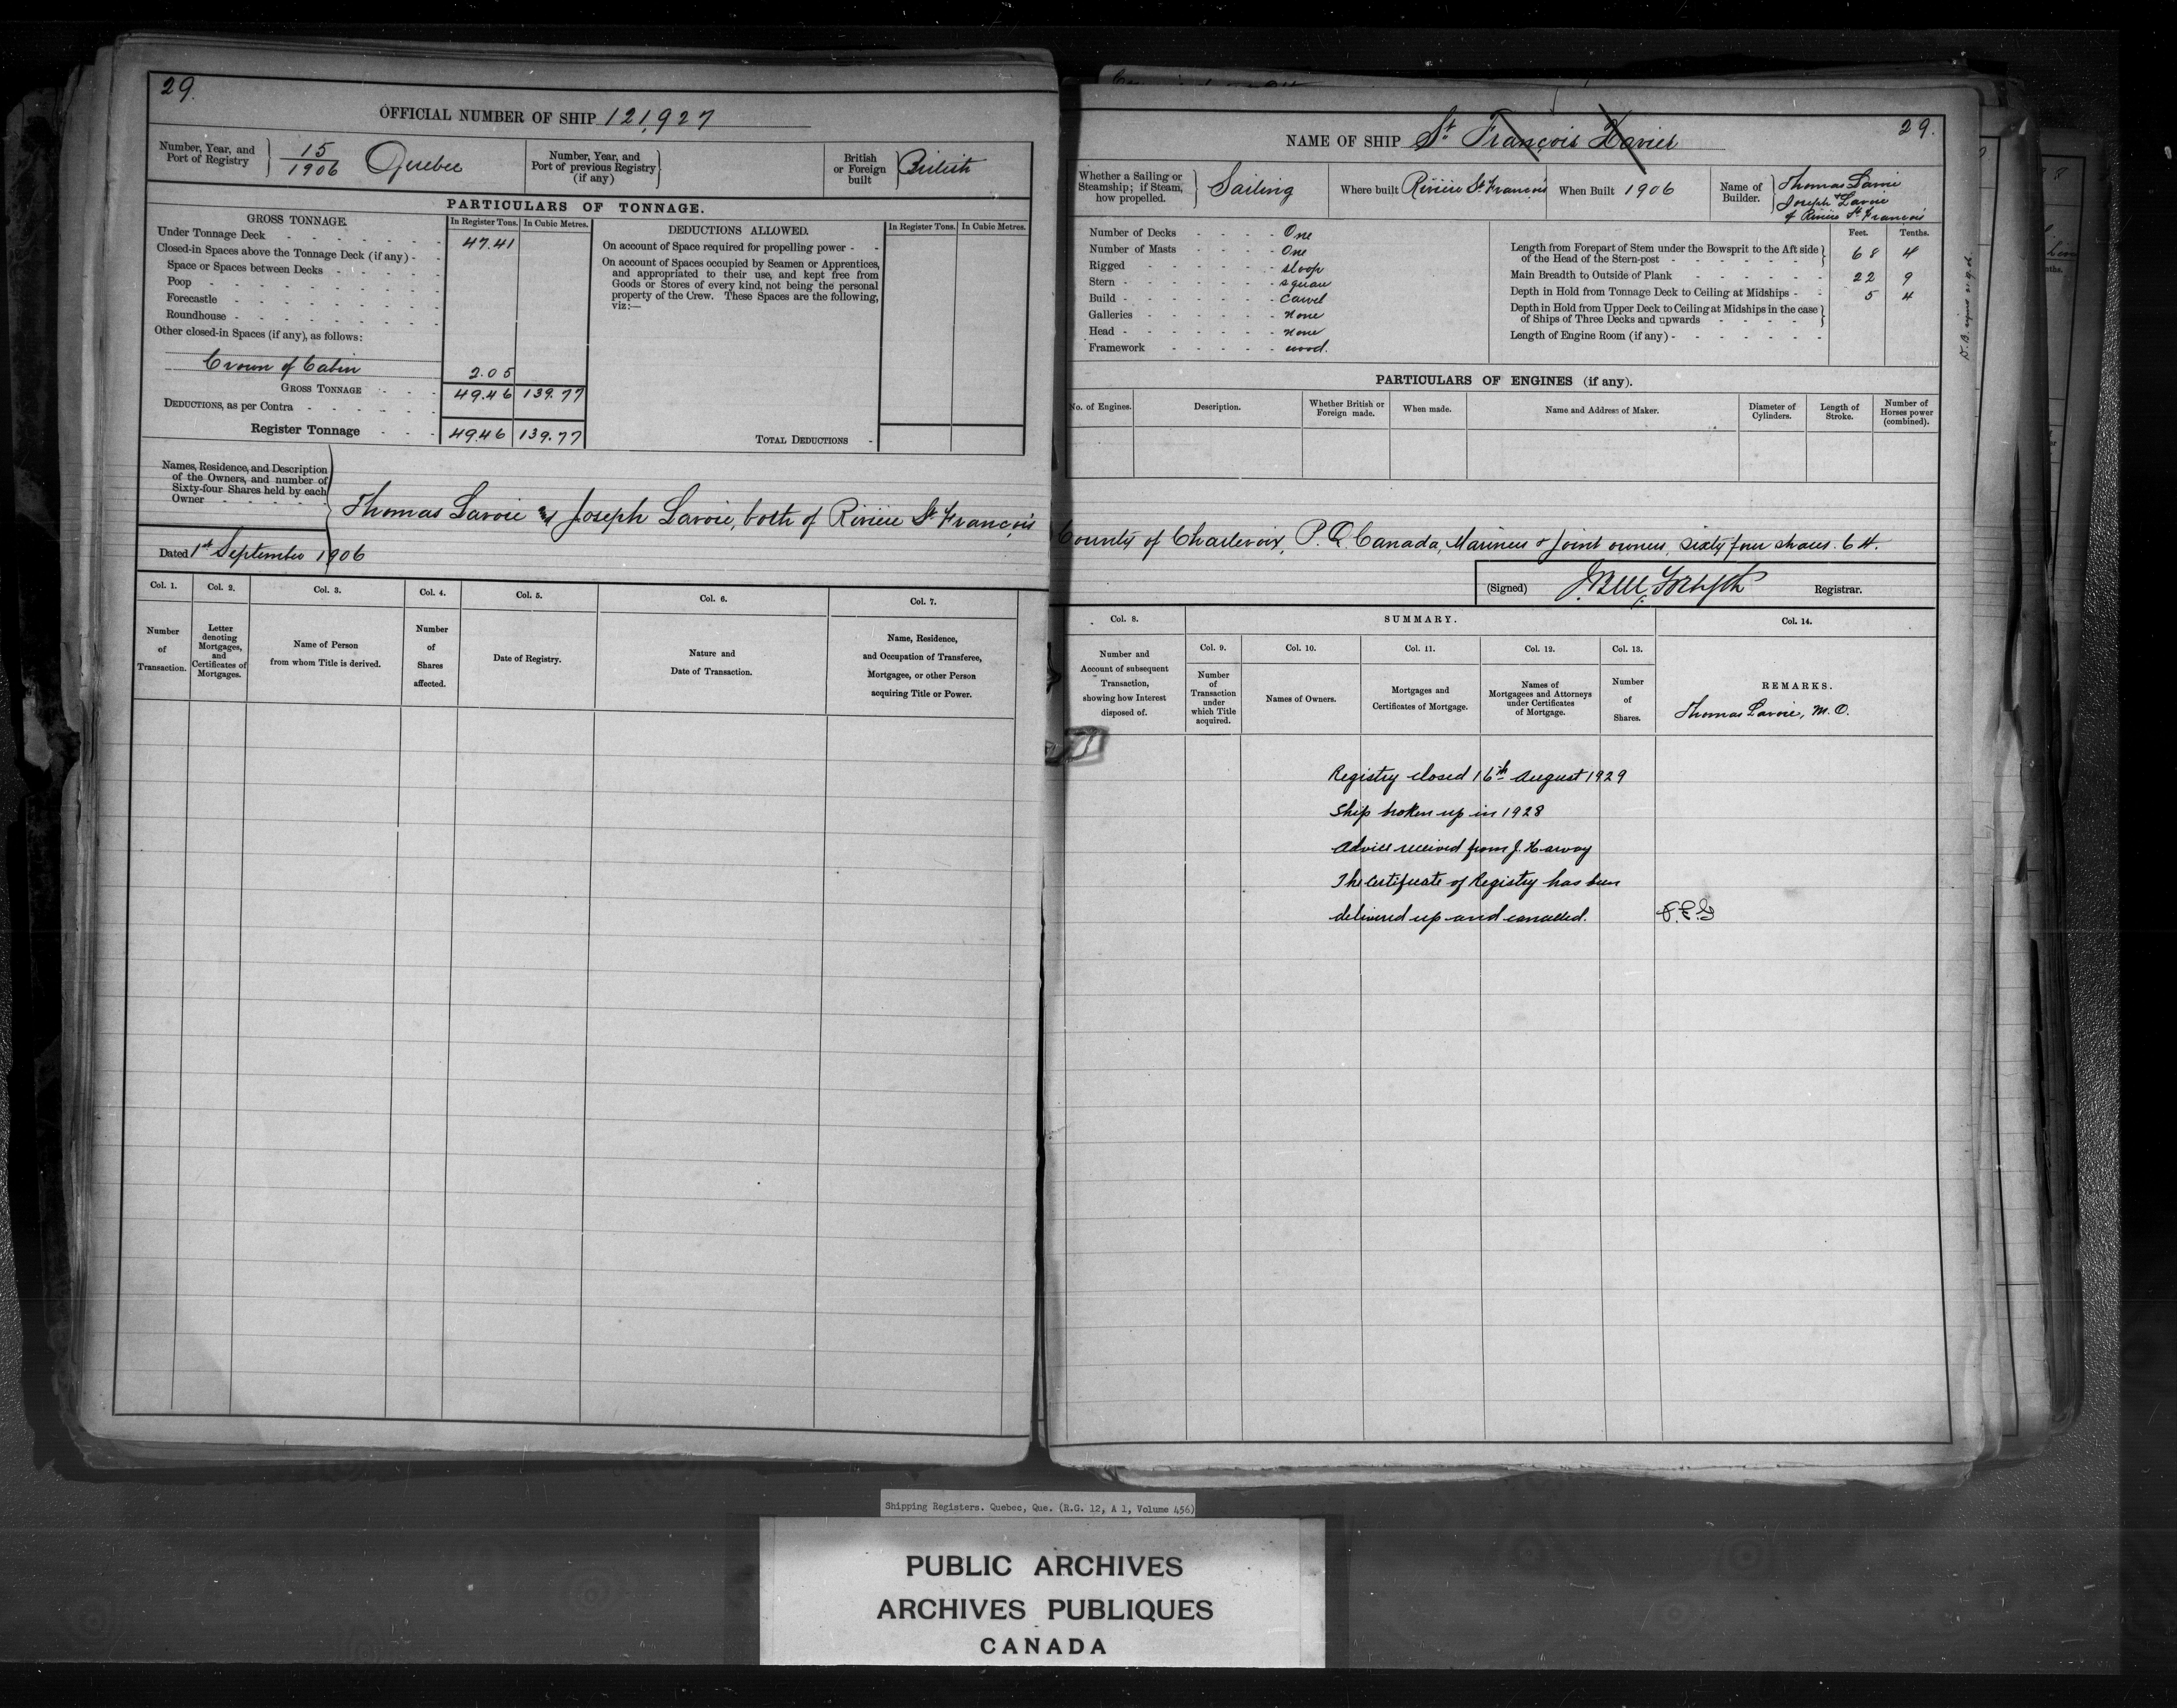 29.
OFFICIAL NUMBER OF SHIP 121,927
Number, Year, and Port of Registry 15/1906 Quebec
Number, Year, and Port of previous Registry (if any)
British or Foreign built British
PARTICULARS OF TONNAGE.
GROSS TONNAGE.
In Register Tons. In Cubic Metres.
Under Tonnage Deck 47.41
Closed-in Spaces above the Tonnage Deck (if any)
Space or Spaces between Decks
Poop
Forecastle
Roundhouse
Other closed-in Spaces (if any), as follows:
Crown of Cabin 2.05
GROSS TONNAGE 49.46 139.77
DEDUCTIONS, as per Contra
Register Tonnage 49.46 139.77
DEDUCTIONS ALLOWED.
In Register Tons. In Cubic Metres.
On account of Space required for propelling power
On account of Spaces occupied by Seamen or Apprentices,
and appropriated to their use, and kept free from
Goods or Stores of every kind, not being the personal
property of the Crew. These Spaces are the following,
viz:—
TOTAL DEDUCTIONS
Names, Residence, and Description
of the Owners, and number of
Sixty-four Shares held by each
Owner
Thomas Lavoie and Joseph Lavoie, both of Rivière St François
Dated 1st September 1906
Col. 1. Col. 2. Col. 3. Col. 4. Col. 5. Col. 6. Col. 7.
Number of Transaction.
Letter denoting Mortgages, and Certificates of Mortgages.
Name of Person from whom Title is derived.
Number of Shares affected.
Date of Registry.
Nature and Date of Transaction.
Name, Residence, and Occupation of Transferee, Mortgagee, or other Person acquiring Title or Power.
NAME OF SHIP St François Xavier
29.
Whether a Sailing or Steamship; if Steam, how propelled. Sailing
Where built Rivière St François
When Built 1906
Name of Builder. Thomas Lavoie
& Joseph Lavoie
of Rivière St François
Number of Decks One
Number of Masts One
Rigged sloop
Stern square
Build carvel
Galleries none
Head none
Framework wood.
Feet. Tenths.
Length from Forepart of Stem under the Bowsprit to the Aft side
of the Head of the Stern-post 68 4
Main Breadth to Outside of Plank 22 9
Depth in Hold from Tonnage Deck to Ceiling at Midships 5 4
Depth in Hold from Upper Deck to Ceiling at Midships in the case
of Ships of Three Decks and upwards
Length of Engine Room (if any)
PARTICULARS OF ENGINES (if any).
No. of Engines.
Description.
Whether British or Foreign made.
When made.
Name and Address of Maker.
Diameter of Cylinders.
Length of Stroke.
Number of Horses power (combined).
County of Charlevoix, P.Q. Canada, Mariners & joint owners, sixty four shares. 64.
(Signed) Registrar.
Col. 8. SUMMARY. Col. 14.
Col. 9. Col. 10. Col. 11. Col. 12. Col. 13.
Number and Account of subsequent Transaction, showing how Interest disposed of.
Number of Transaction under which Title acquired.
Names of Owners.
Mortgages and Certificates of Mortgage.
Names of Mortgagees and Attorneys under Certificates of Mortgage.
Number of Shares.
REMARKS.
Thomas Lavoie, M.O.
Registry closed 16th August 1929
Ship broken up in 1928
Advice received from J. Harvay
The Certificate of Registry has been
delivered up and cancelled.
Shipping Registers. Quebec, Que. (R.G. 12, A 1, Volume 456)
PUBLIC ARCHIVES
ARCHIVES PUBLIQUES
CANADA